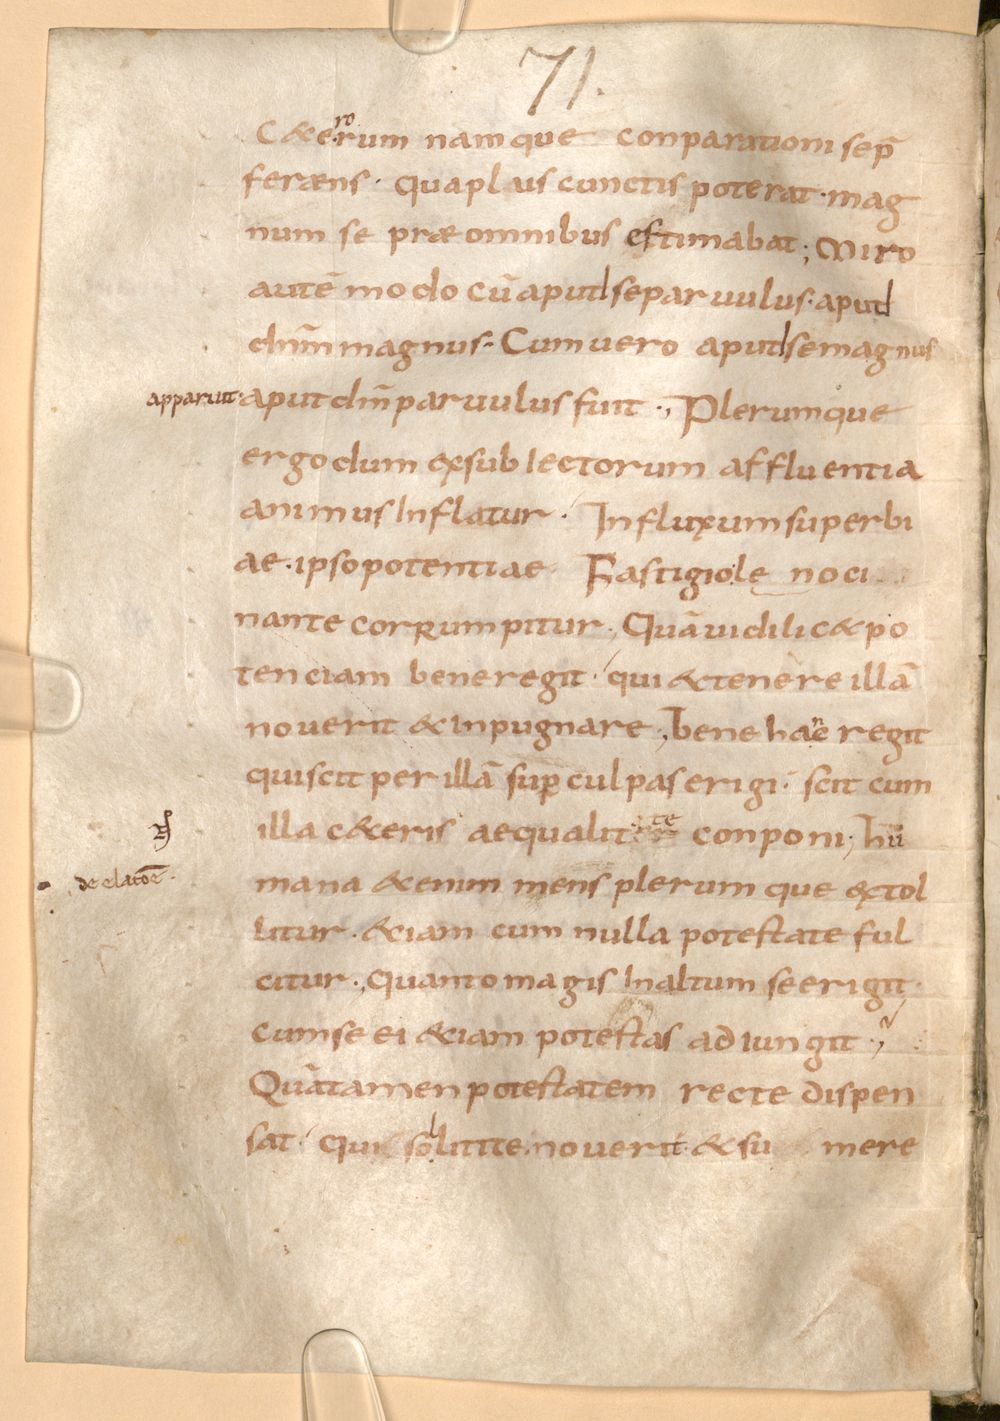 71.
C&erorum namque conparationi sep̄
feræns · quaplus cunctis poterat · mag
num se præ omnibus estimabat ; Miro
autē modo cū apud se parvulus · apud
dn̄m magnus · Cum vero apud se magnus
apparuit · aput dn̄m parvulus fuit ·, Plerumque
ergo dum ex sublectorum affluentia
animus Inflatur · In fluxum superbi
ae · ipso potentiae Fastigio le noci
nante corrumpitur · Quā vidilic& po
tenciam bene regit · qui & tenere illā
noverit & inpugnare ·, bene hanc regit
qui scit per illā sup culpas erigi · scit cum
illa c&eris aequalitate conponi ; hu
mana &enim mens plerum que extol
litur · &iam cum nulla potestate ful
citur ·, quanto magis In altum se erigit ·
cum se ei &iam potestas adiungit ·,
Quā tamen potestatem recte dispen
sat · qui sollitite noverit · & su mere
de elatōe ·